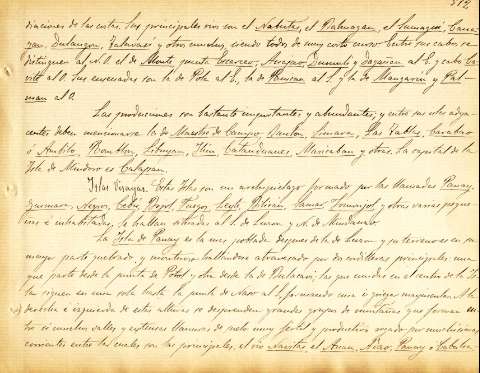 312
diaciones de las costas. Sus principales rios son el Nabutas, el Pialuagan, el Sumagui, Casu-
gan, Bulangon, Palavan y otros muchos, siendo todos de muy corto curso. Entre sus cabos se
distinguen al N.O. el de Monte, punta Escarceo, Dumali y Dayagan al E. y cabo Ca-
vite al O. Sus ensenadas son la de Pola al E., la de Pandan al S. y la de Mangarin y Pal-
uan al O.
Las producciones son bastante importantes y abundantes, y entre sus islas adya-
centes deben mencionarse la de Maestre de Campo, Banton, Simara, Las Tablas,
ó Ambilo, Romblon, Sibuyan, Ilin, Catanduanes, Maricaban y otras. La capital de la
Isla de Mindoro es Calapan.
Islas Visayas. Estas Islas son un archipielago formado por las llamadas Panay,
Guimaras, Negros, Cebú, Bohol, Fuegos, Leyte, Biliran, Samar, y otras varias peque-
ñas é inhabitadas, se hallan situadas al S. de Luzon y N. de Mindanao.
La Isla de Panay es la mas poblada despues de la de Luzon y su terreno es en su
mayor parte quebrado, y montuoso hallandose atravesado por dos cordilleras principales una
que parte desde la punta de Potol y otra desde la de Bulacaui; las que unidas en el centro de la Is-
la siguen en una sola hasta la punta de Naso al S. formando uno ó grupos mayores. A la
derecha é izquierda de estas alturas se desprenden grandes grupos de montañas que forman en-
tre si muchos valles y extensas llanuras de suelo muy fertil y productivo regado por muchisimas
corrientes entre las cuales son las principales, el rio el Aclan, Panay ó